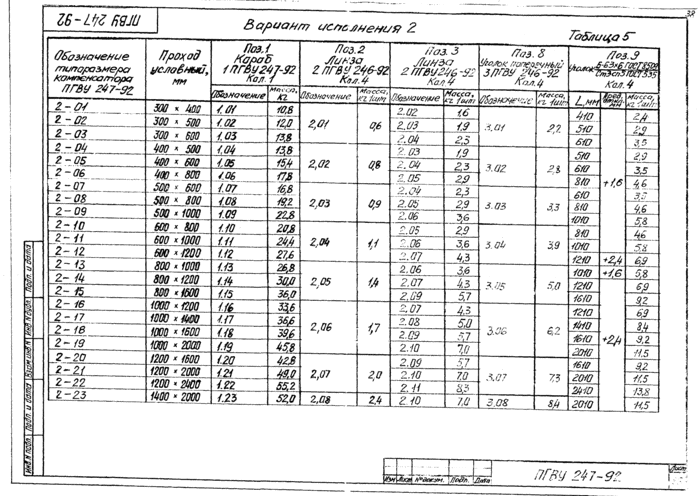 ПГВУ 247-92
38
Вариант исполнения 2
Таблица 5
Обозначение типоразмера компенсатора ПГВУ 247-92 | Проход условный, мм | Поз.1 Караб 1 ПГВУ 247-92 Кол.1 | Поз.2 Линза 2 ПГВУ 246-92 Кол.4 | Поз.3 Линза 2 ПГВУ 246-92 Кол.4 | Поз.8 Уголок поперечный 3 ПГВУ 246-92 Кол.4 | Поз.9 Уголок Кол.4
Обозначение | Масса, кг | Обозначение | Масса, кг 1шт. | Обозначение | Масса, кг 1шт. | Обозначение | Масса, кг 1шт. | L, мм | Масса, кг 1шт.
2-01 | 300 × 400 | 1.01 | 10,8 | 2,01 | 0,6 | 2.02 | 1,6 | 3.01 | 2,2 | 410 | +1,6 | 2,4
2-02 | 300 × 500 | 1.02 | 12,0 | 2.03 | 1,9 | 510 | 2,9
2-03 | 300 × 600 | 1.03 | 13,8 | 2.04 | 2,3 | 610 | 3,5
2-04 | 400 × 500 | 1.04 | 13,8 | 2,02 | 0,8 | 2.03 | 1,9 | 3.02 | 2,8 | 510 | 2,9
2-05 | 400 × 600 | 1.05 | 15,4 | 2.04 | 2,3 | 610 | 3,5
2-06 | 400 × 800 | 1.06 | 17,8 | 2.05 | 2,9 | 810 | 4,6
2-07 | 500 × 600 | 1.07 | 16,8 | 2,03 | 0,9 | 2.04 | 2,3 | 3.03 | 3,3 | 610 | 3,5
2-08 | 500 × 800 | 1.08 | 19,2 | 2.05 | 2,9 | 810 | 4,6
2-09 | 500 × 1000 | 1.09 | 22,8 | 2.06 | 3,6 | 1010 | 5,8
2-10 | 600 × 800 | 1.10 | 20,8 | 2,04 | 1,1 | 2.05 | 2,9 | 3.04 | 3,9 | 810 | 4,6
2-11 | 600 × 1000 | 1.11 | 24,4 | 2.06 | 3,6 | 1010 | 5,8
2-12 | 600 × 1200 | 1.12 | 27,6 | 2.07 | 4,3 | 1210 | +2,4 | 6,9
2-13 | 800 × 1000 | 1.13 | 26,8 | 2.05 | 1,4 | 2.06 | 3,6 | 3.05 | 5,0 | 1010 | +1,6 | 5,8
2-14 | 800 × 1200 | 1.14 | 30,0 | 2.07 | 4,3 | 1210 | +2,4 | 6,9
2-15 | 800 × 1600 | 1.15 | 36,0 | 2.09 | 5,7 | 1610 | 9,2
2-16 | 1000 × 1200 | 1.16 | 33,6 | 2,06 | 1,7 | 2.07 | 4,3 | 3.06 | 6,2 | 1210 | 6,9
2-17 | 1000 × 1400 | 1.17 | 36,6 | 2.08 | 5,0 | 1410 | 8,4
2-18 | 1000 × 1600 | 1.18 | 39,6 | 2.09 | 5,7 | 1610 | 9,2
2-19 | 1000 × 2000 | 1.19 | 45,8 | 2.10 | 7,0 | 2010 | 11,5
2-20 | 1200 × 1600 | 1.20 | 42,8 | 2,07 | 2,0 | 2.09 | 5,7 | 3.07 | 7,3 | 1610 | 9,2
2-21 | 1200 × 2000 | 1.21 | 49,0 | 2.10 | 7,0 | 2010 | 11,5
2-22 | 1200 × 2400 | 1.22 | 55,2 | 2.11 | 8,3 | 2410 | 13,8
2-23 | 1400 × 2000 | 1.23 | 52,0 | 2,08 | 2,4 | 2.10 | 7,0 | 3.08 | 8,4 | 2010 | 11,5
Инв.№ подл. Подп. и дата Взам.инв.№ Инв.№ дубл. Подп. и дата
Изм Лист № докум. Подп. Дата
ПГВУ 247-92
Лист